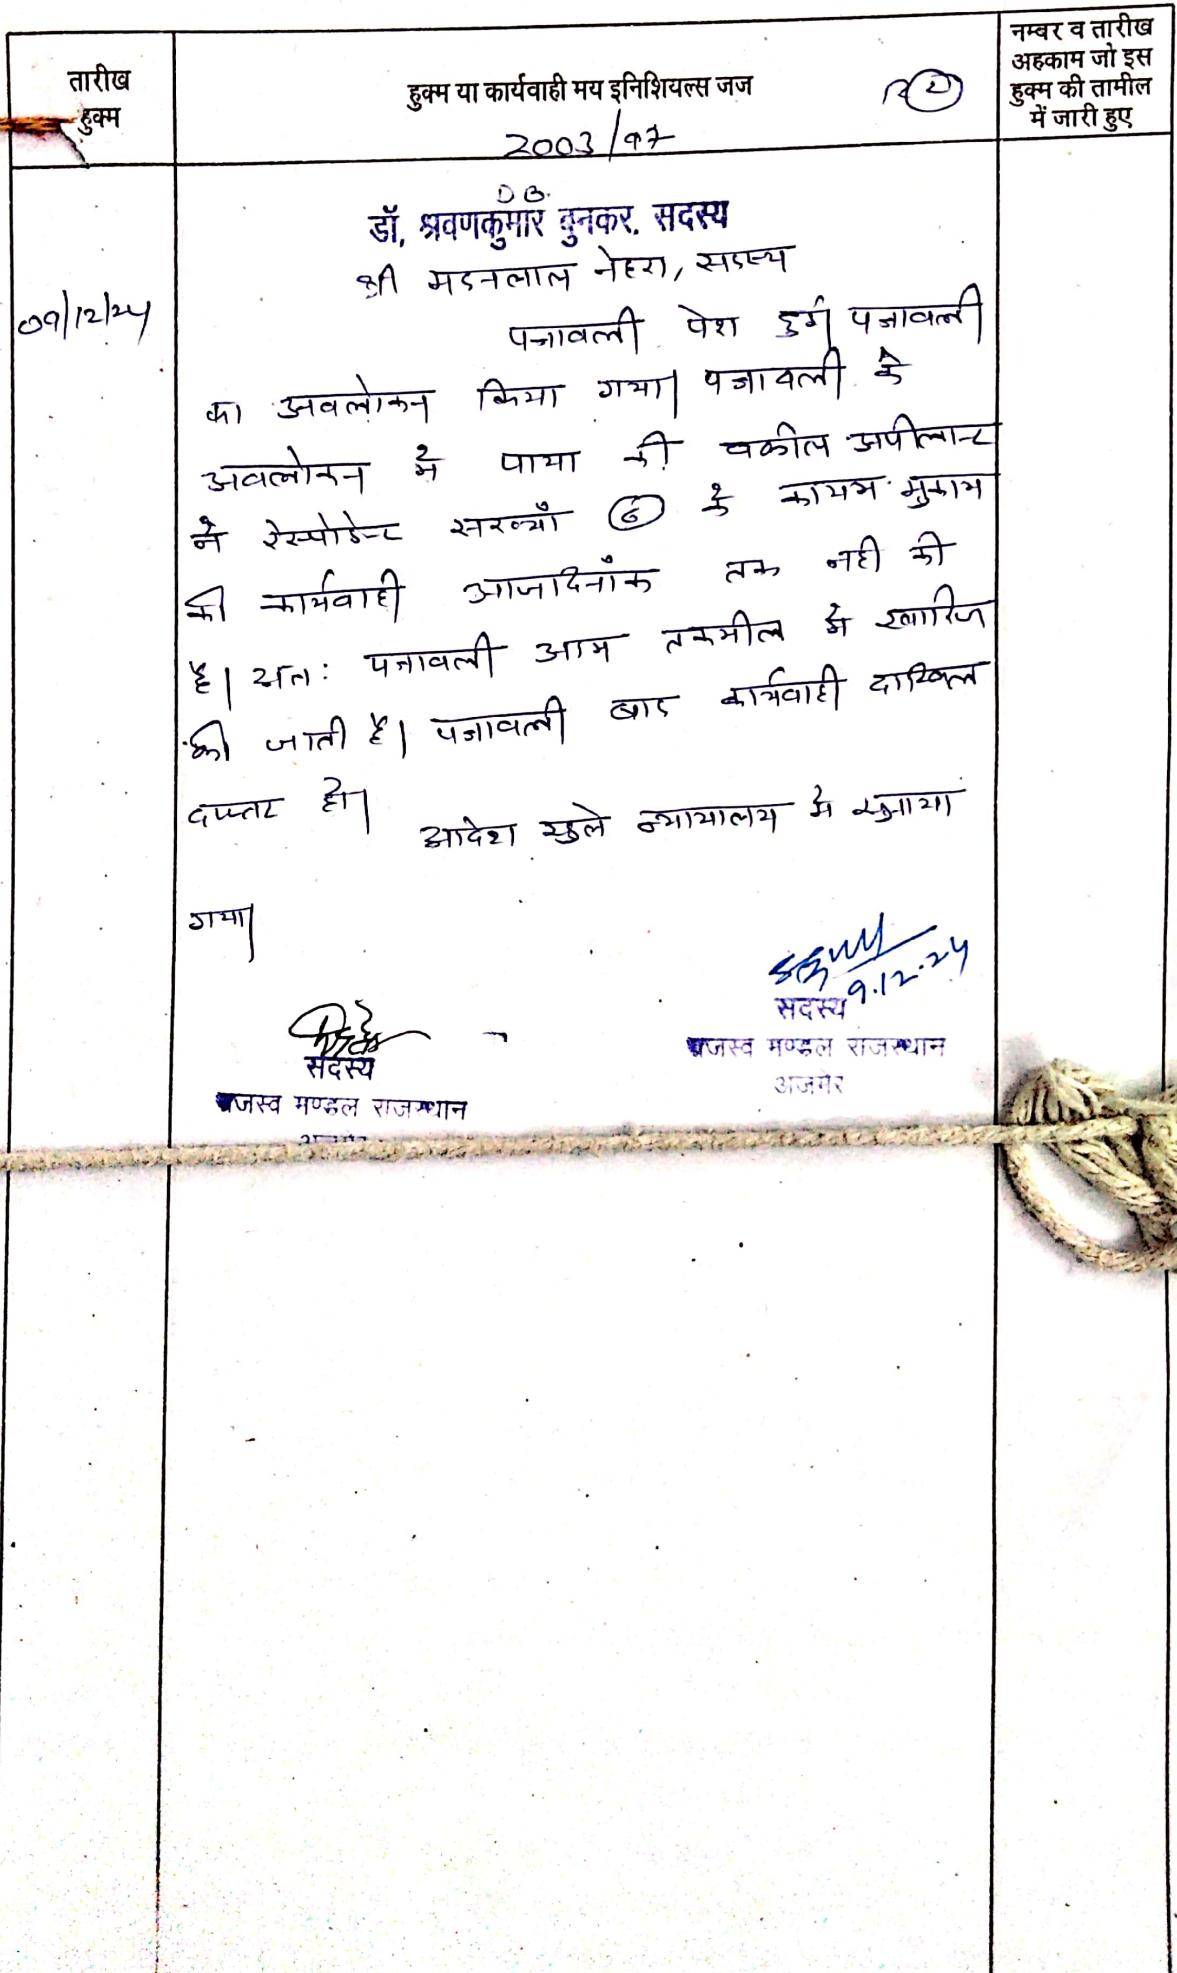 तारीख
हुक्म
हुक्म या कार्यवाही मय इनिशियल्स जज
नम्बर व तारीख
अहकाम जो इस
हुक्म की तामील
में जारी हुए
2003/97
D B.
डॉ. श्रवणकुमार बुनकर, सदस्य
श्री मदनलाल नेहरा, सदस्य
09/12/24
पत्रावली पेश हुई। पत्रावली
का अवलोकन किया गया। पत्रावली के
अवलोकन में पाया की वकील अपीलान्ट
ने रेस्पोडेन्ट सख्याँ 6 के कायम मुकाम
की कार्यवाही आजदिनाँक तक नही की
है। अतः पत्रावली आम तकमील में खारिज
की जाती है। पत्रावली बाद कार्यवाही दाखिल
दफ्तर हो।
आदेश खुले न्यायालय में सुनाया
गया।
9.12.24
सदस्य
राजस्व मण्डल राजस्थान
अजमेर
सदस्य
राजस्व मण्डल राजस्थान